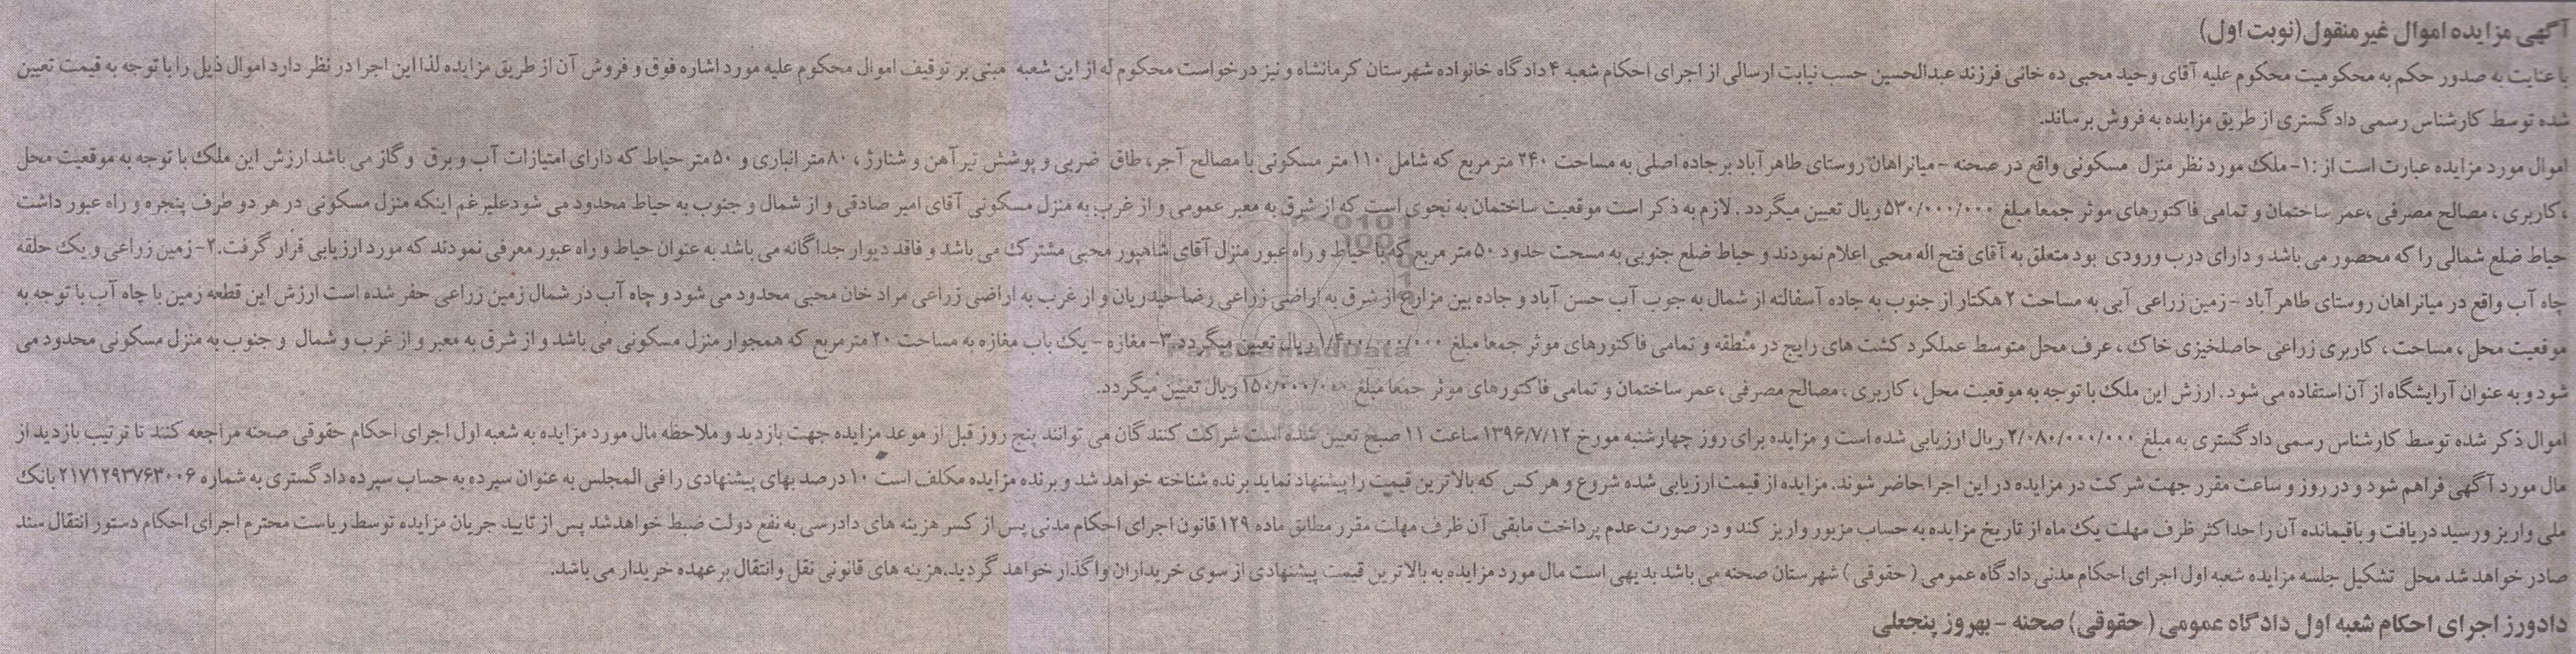 آگهی مزایده اموال غیر منقول(نوبت اول)
با عنایت به صدور حکم به محکومیت محکوم علیه آقای وحید محبی ده خانی فرزند عبدالحسین حسب نیابت ارسالی از اجرای احکام شعبه ۴ دادگاه خانواده شهرستان کرمانشاه و نیز درخواست محکوم له از این شعبه مبنی بر توقیف اموال محکوم علیه مورد اشاره فوق و فروش آن از طریق مزایده لذا این اجرا در نظر دارد اموال ذیل را با توجه به قیمت تعیین
شده توسط کارشناس رسمی دادگستری از طریق مزایده به فروش برساند.
اموال مورد مزایده عبارت است از :۱- ملک مورد نظر منزل مسکونی واقع در صحنه - میانراهان روستای طاهرآباد بر جاده اصلی به مساحت ۲۴۰ مترمربع که شامل ۱۱۰ متر مسکونی با مصالح آجر، طاق ضربی و پوشش تیرآهن و شناژ ، ۸۰ متر انباری و ۵۰ متر حیاط که دارای امتیازات آب و برق و گاز می باشد ارزش این ملک با توجه به موقعیت محل
،کاربری ، مصالح مصرفی ،عمر ساختمان و تمامی فاکتورهای موثر جمعا مبلغ ۵۳۰/۰۰۰/۰۰۰ ریال تعیین میگردد . لازم به ذکر است موقعیت ساختمان به نحوی است که از شرق به معبر عمومی و از غرب به منزل مسکونی آقای امیر صادقی و از شمال و جنوب به حیاط محدود می شود علیرغم اینکه منزل مسکونی در هر دو طرف پنجره و راه عبور داشت
حیاط ضلع شمالی را که محصور می باشد و دارای درب ورودی بود متعلق به آقای فتح اله محبی اعلام نمودند و حیاط ضلع جنوبی به مسحت حدود ۵۰ متر مربع که با حیاط و راه عبور منزل آقای شاهپور محبی مشترک می باشد و فاقد دیوار جداگانه می باشد به عنوان حیاط و راه عبور معرفی نمودند که مورد ارزیابی قرار گرفت.۲- زمین زراعی و یک حلقه
چاه آب واقع در میانراهان روستای طاهرآباد - زمین زراعی آبی به مساحت ۲ هکتار از جنوب به جاده آسفالته از شمال به جوب آب حسن آباد و جاده بین مزارع از شرق به اراضی زراعی رضا حیدریان و از غرب به اراضی زراعی مراد خان محبی محدود می شود و چاه آب در شمال زمین زراعی حفر شده است ارزش این قطعه زمین با چاه آب با توجه به
موقعیت محل ، مساحت ، کاربری زراعی حاصلخیزی خاک ، عرف محل متوسط عملکرد کشت های رایج در منطقه و تمامی فاکتورهای موثر جمعا مبلغ ۱/۴۰۰/۰۰۰/۰۰۰ ریال تعیین میگردد.۳- مغازه - یک باب مغازه به مساحت ۲۰ مترمربع که همجوار منزل مسکونی می باشد و از شرق به معبر و از غرب و شمال و جنوب به منزل مسکونی محدود می
شود و به عنوان آرایشگاه از آن استفاده می شود . ارزش این ملک با توجه به موقعیت محل ، کاربری ، مصالح مصرفی ، عمر ساختمان و تمامی فاکتورهای موثر جمعا مبلغ ۱۵۰/۰۰۰/۰۰۰ ریال تعیین میگردد.
اموال ذکر شده توسط کارشناس رسمی دادگستری به مبلغ ۲/۰۸۰/۰۰۰/۰۰۰ ریال ارزیابی شده است و مزایده برای روز چهارشنبه مورخ ۱۳۹۶/۷/۱۲ ساعت ۱۱ صبح تعیین شده است شرکت کنندگان می توانند پنج روز قبل از موعد مزایده جهت بازدید و ملاحظه مال مورد مزایده به شعبه اول اجرای احکام حقوقی صحنه مراجعه کنند تا ترتیب بازدید از
مال مورد آگهی فراهم شود و در روز و ساعت مقرر جهت شرکت در مزایده در این اجرا حاضر شوند. مزایده از قیمت ارزیابی شده شروع و هر کس که بالاترین قیمت را پیشنهاد نماید برنده شناخته خواهد شد و برنده مزایده مکلف است ۱۰ درصد بهای پیشنهادی را فی المجلس به عنوان سپرده به حساب سپرده دادگستری به شماره ۲۱۷۱۲۹۳۷۶۳۰۰۶ بانک
ملی واریز و رسید دریافت و باقیمانده آن را حداکثر ظرف مهلت یک ماه از تاریخ مزایده به حساب مزبور واریز کند و در صورت عدم پرداخت مابقی آن ظرف مهلت مقرر مطابق ماده ۱۲۹ قانون اجرای احکام مدنی پس از کسر هزینه های دادرسی به نفع دولت ضبط خواهدشد پس از تایید جریان مزایده توسط ریاست محترم اجرای احکام دستور انتقال سند
صادر خواهد شد محل تشکیل جلسه مزایده شعبه اول اجرای احکام مدنی دادگاه عمومی (حقوقی) شهرستان صحنه می باشد بدیهی است مال مورد مزایده به بالاترین قیمت پیشنهادی از سوی خریداران واگذار خواهد گردید.هزینه های قانونی نقل وانتقال بر عهده خریدار می باشد.
دادورز اجرای احکام شعبه اول دادگاه عمومی (حقوقی) صحنه - بهروز پنجعلی